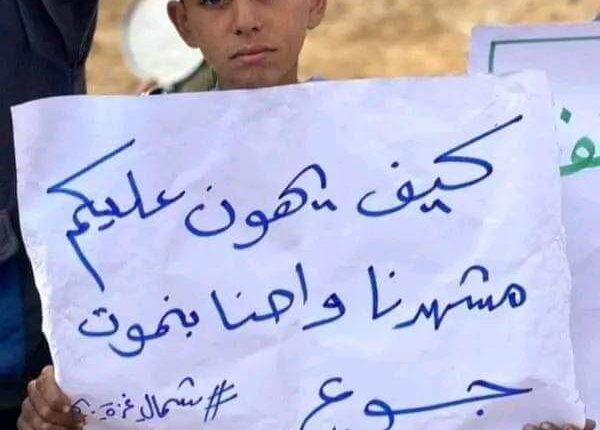 كيف يهون عليكم
مشهدنا واحنا بنموت
جوع
#شمال غزة